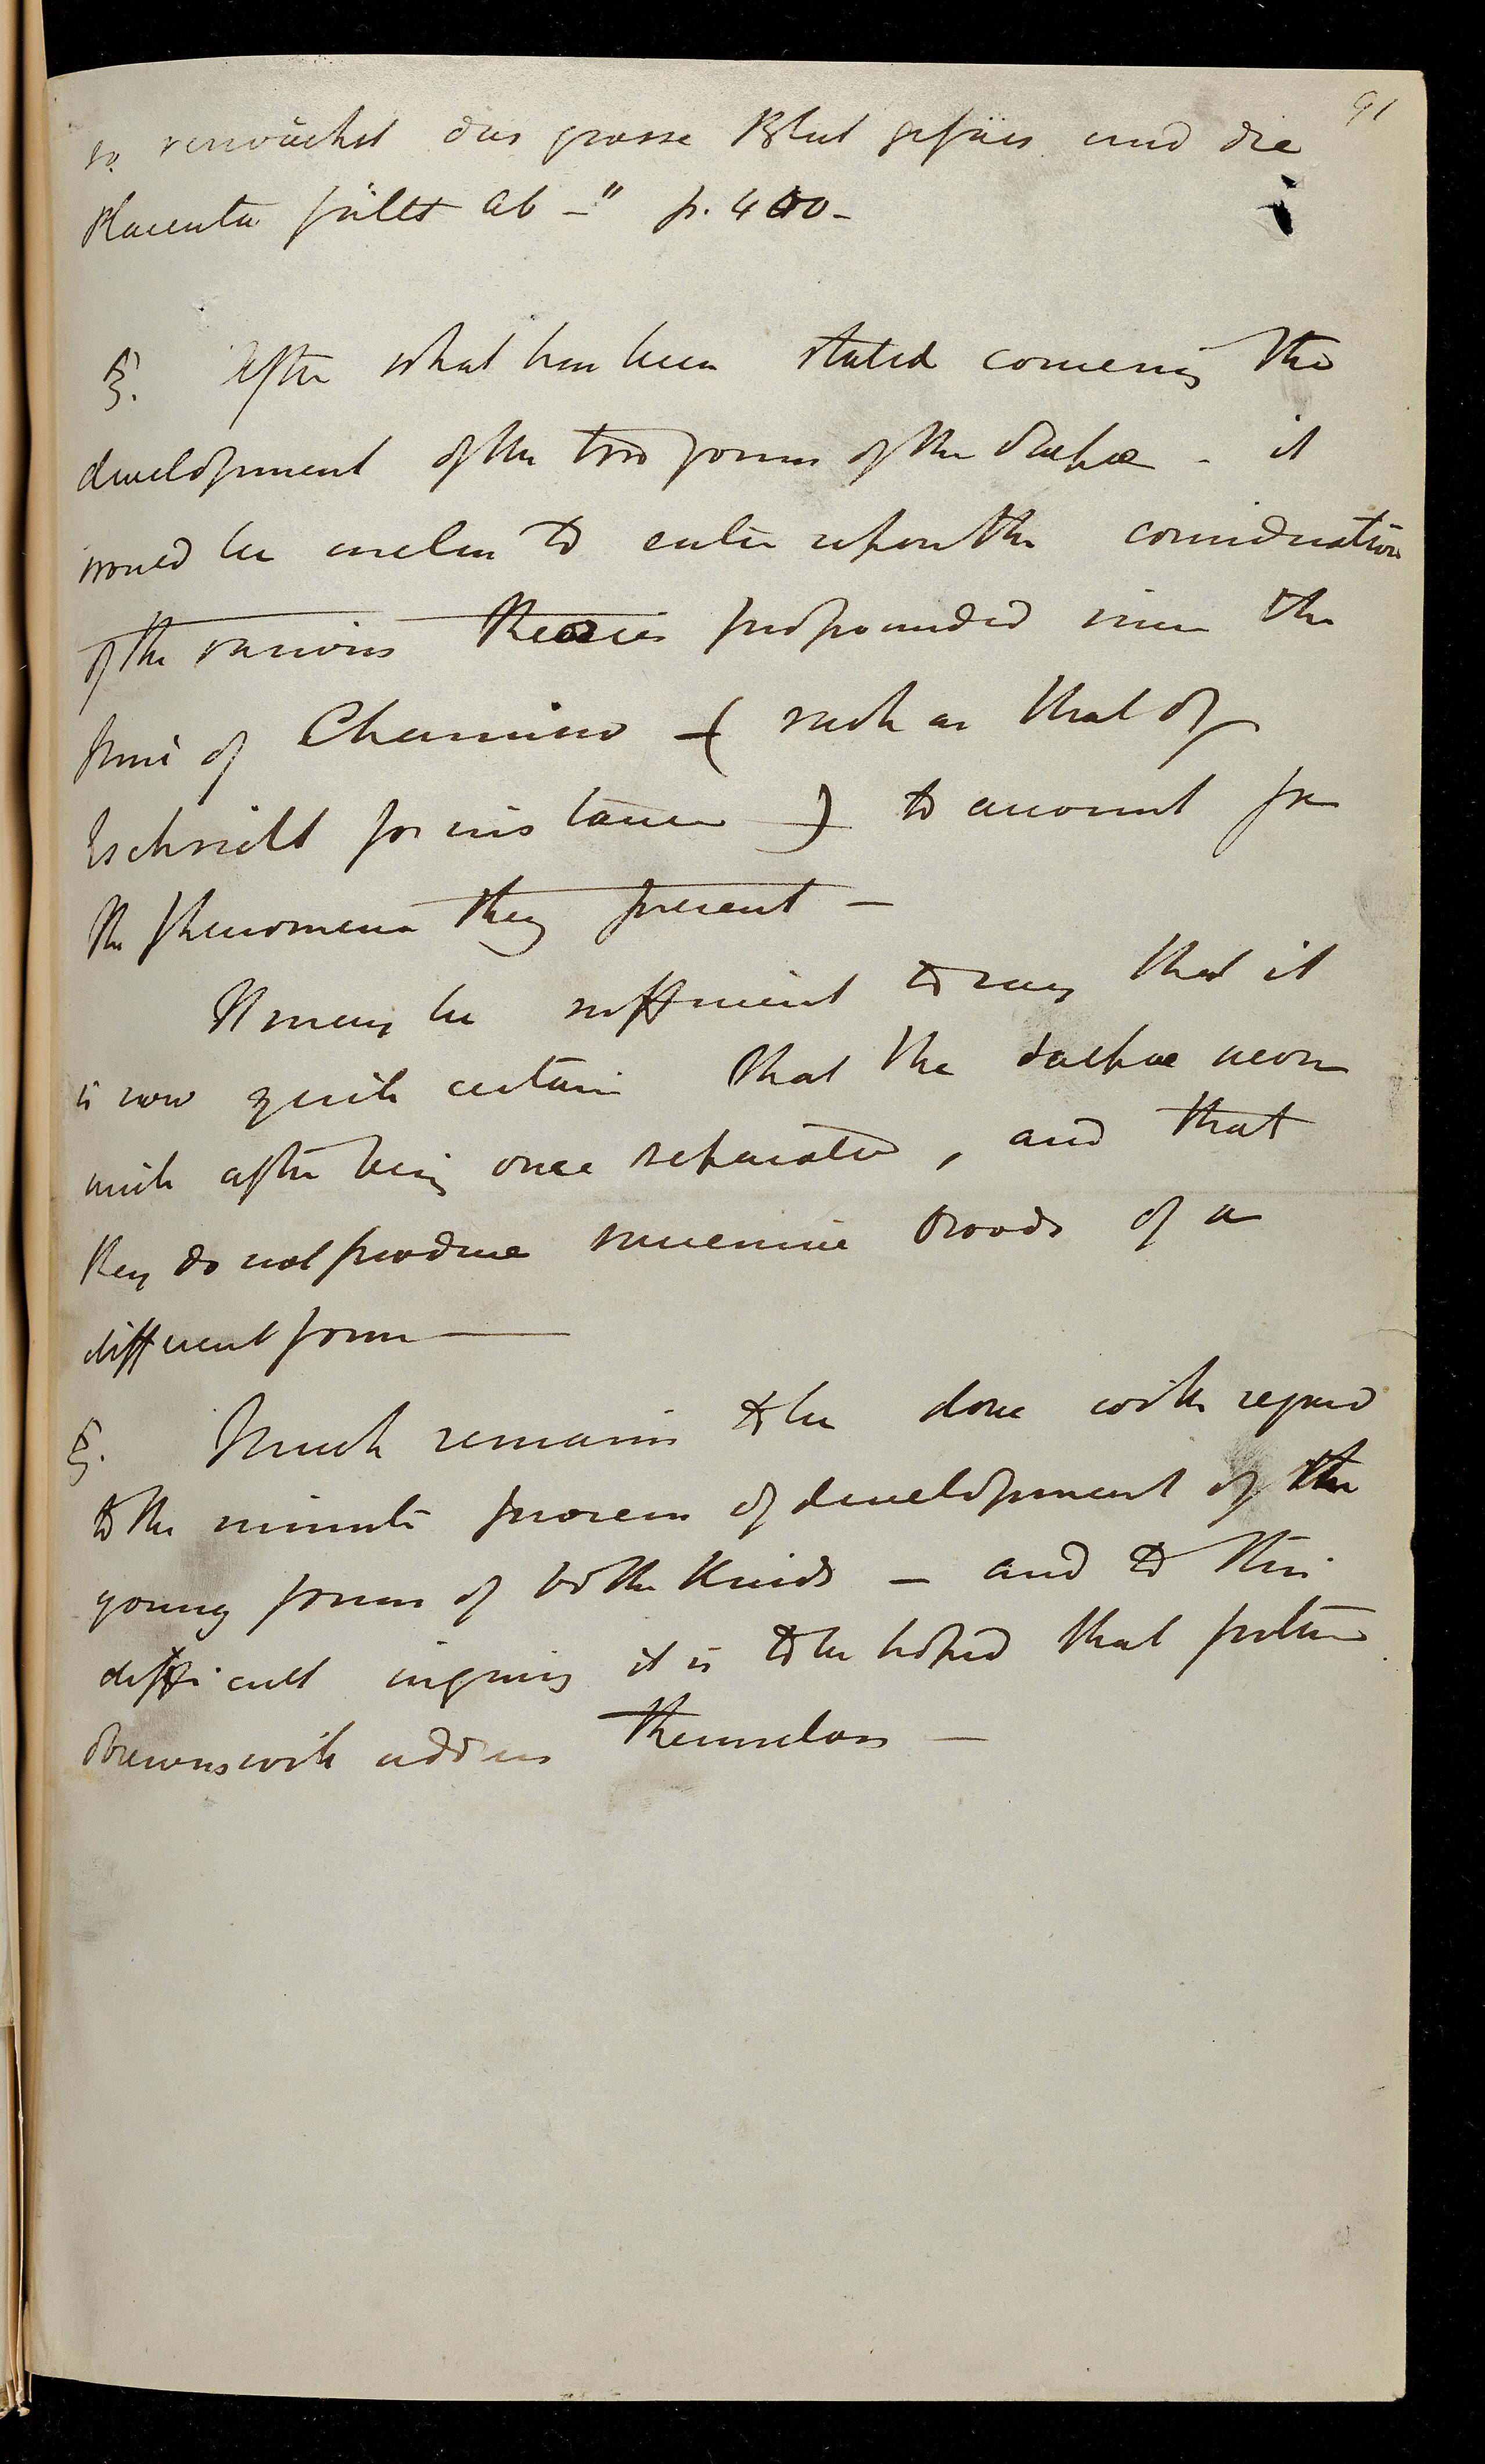 91
so verwächst das grosse Blut gefäss und die
Placenta fällt ab —" p. 400 -
§. After what has been stated concerning the
development of the two forms of the Salpæ - it
would be useless to enter upon the consideration
of the various theories propounded since the
time of Chamisso — ( such as that of
Eschricht for instance ) to account for
the phenomena they present —
It may be sufficient to say that it
is now quite certain that the Salpæ never
unite after being once separated, and that
they do not produce successive broods of a
different form —
§. Much remains to be done with regard
to the minute process of development of the
young forms of both kinds — and to this
difficult inquiry it is to be hoped that future
observers will address themselves —